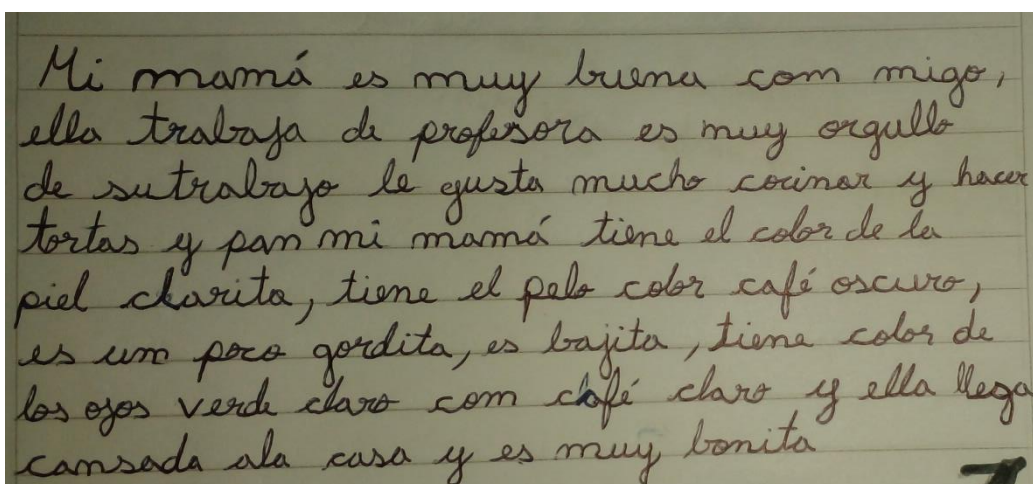 Mi mamá es muy buena com migo,
ella trabaja de profesora es muy orgullo
de sutrabajo le gusta mucho cocinar y hacer
tortas y pan mi mamá tiene el color de la
piel clarita, tiene el pelo color café oscuro,
es um poco gordita, es bajita, tiene color de
los ojos verde claro com café claro y ella llega
camsada ala casa y es muy bonita